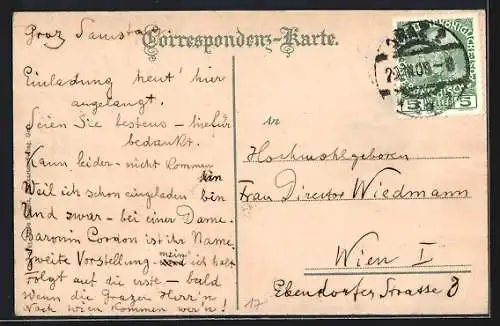 Graz Samstag
Correspondenz-Karte.
Einladung heut' hier
angelangt.
Seien Sie bestens – hiefür
bedankt.
Kann leider – nicht kommen
Weil ich schon eingeladen bin
Und zwar – bei einer Dame.
Baronin Cordon ist ihr Name.
Zweite Vorstellung – mein ich halt
Folgt auf die erste – bald
Wenn die Grazer Herr'n
Nach Wien kommen wer'n!
GRAZ
08
5 5
Hochwohlgeboren
Frau Director Wiedmann
Wien I
Ebendorfer Strasse 8
17